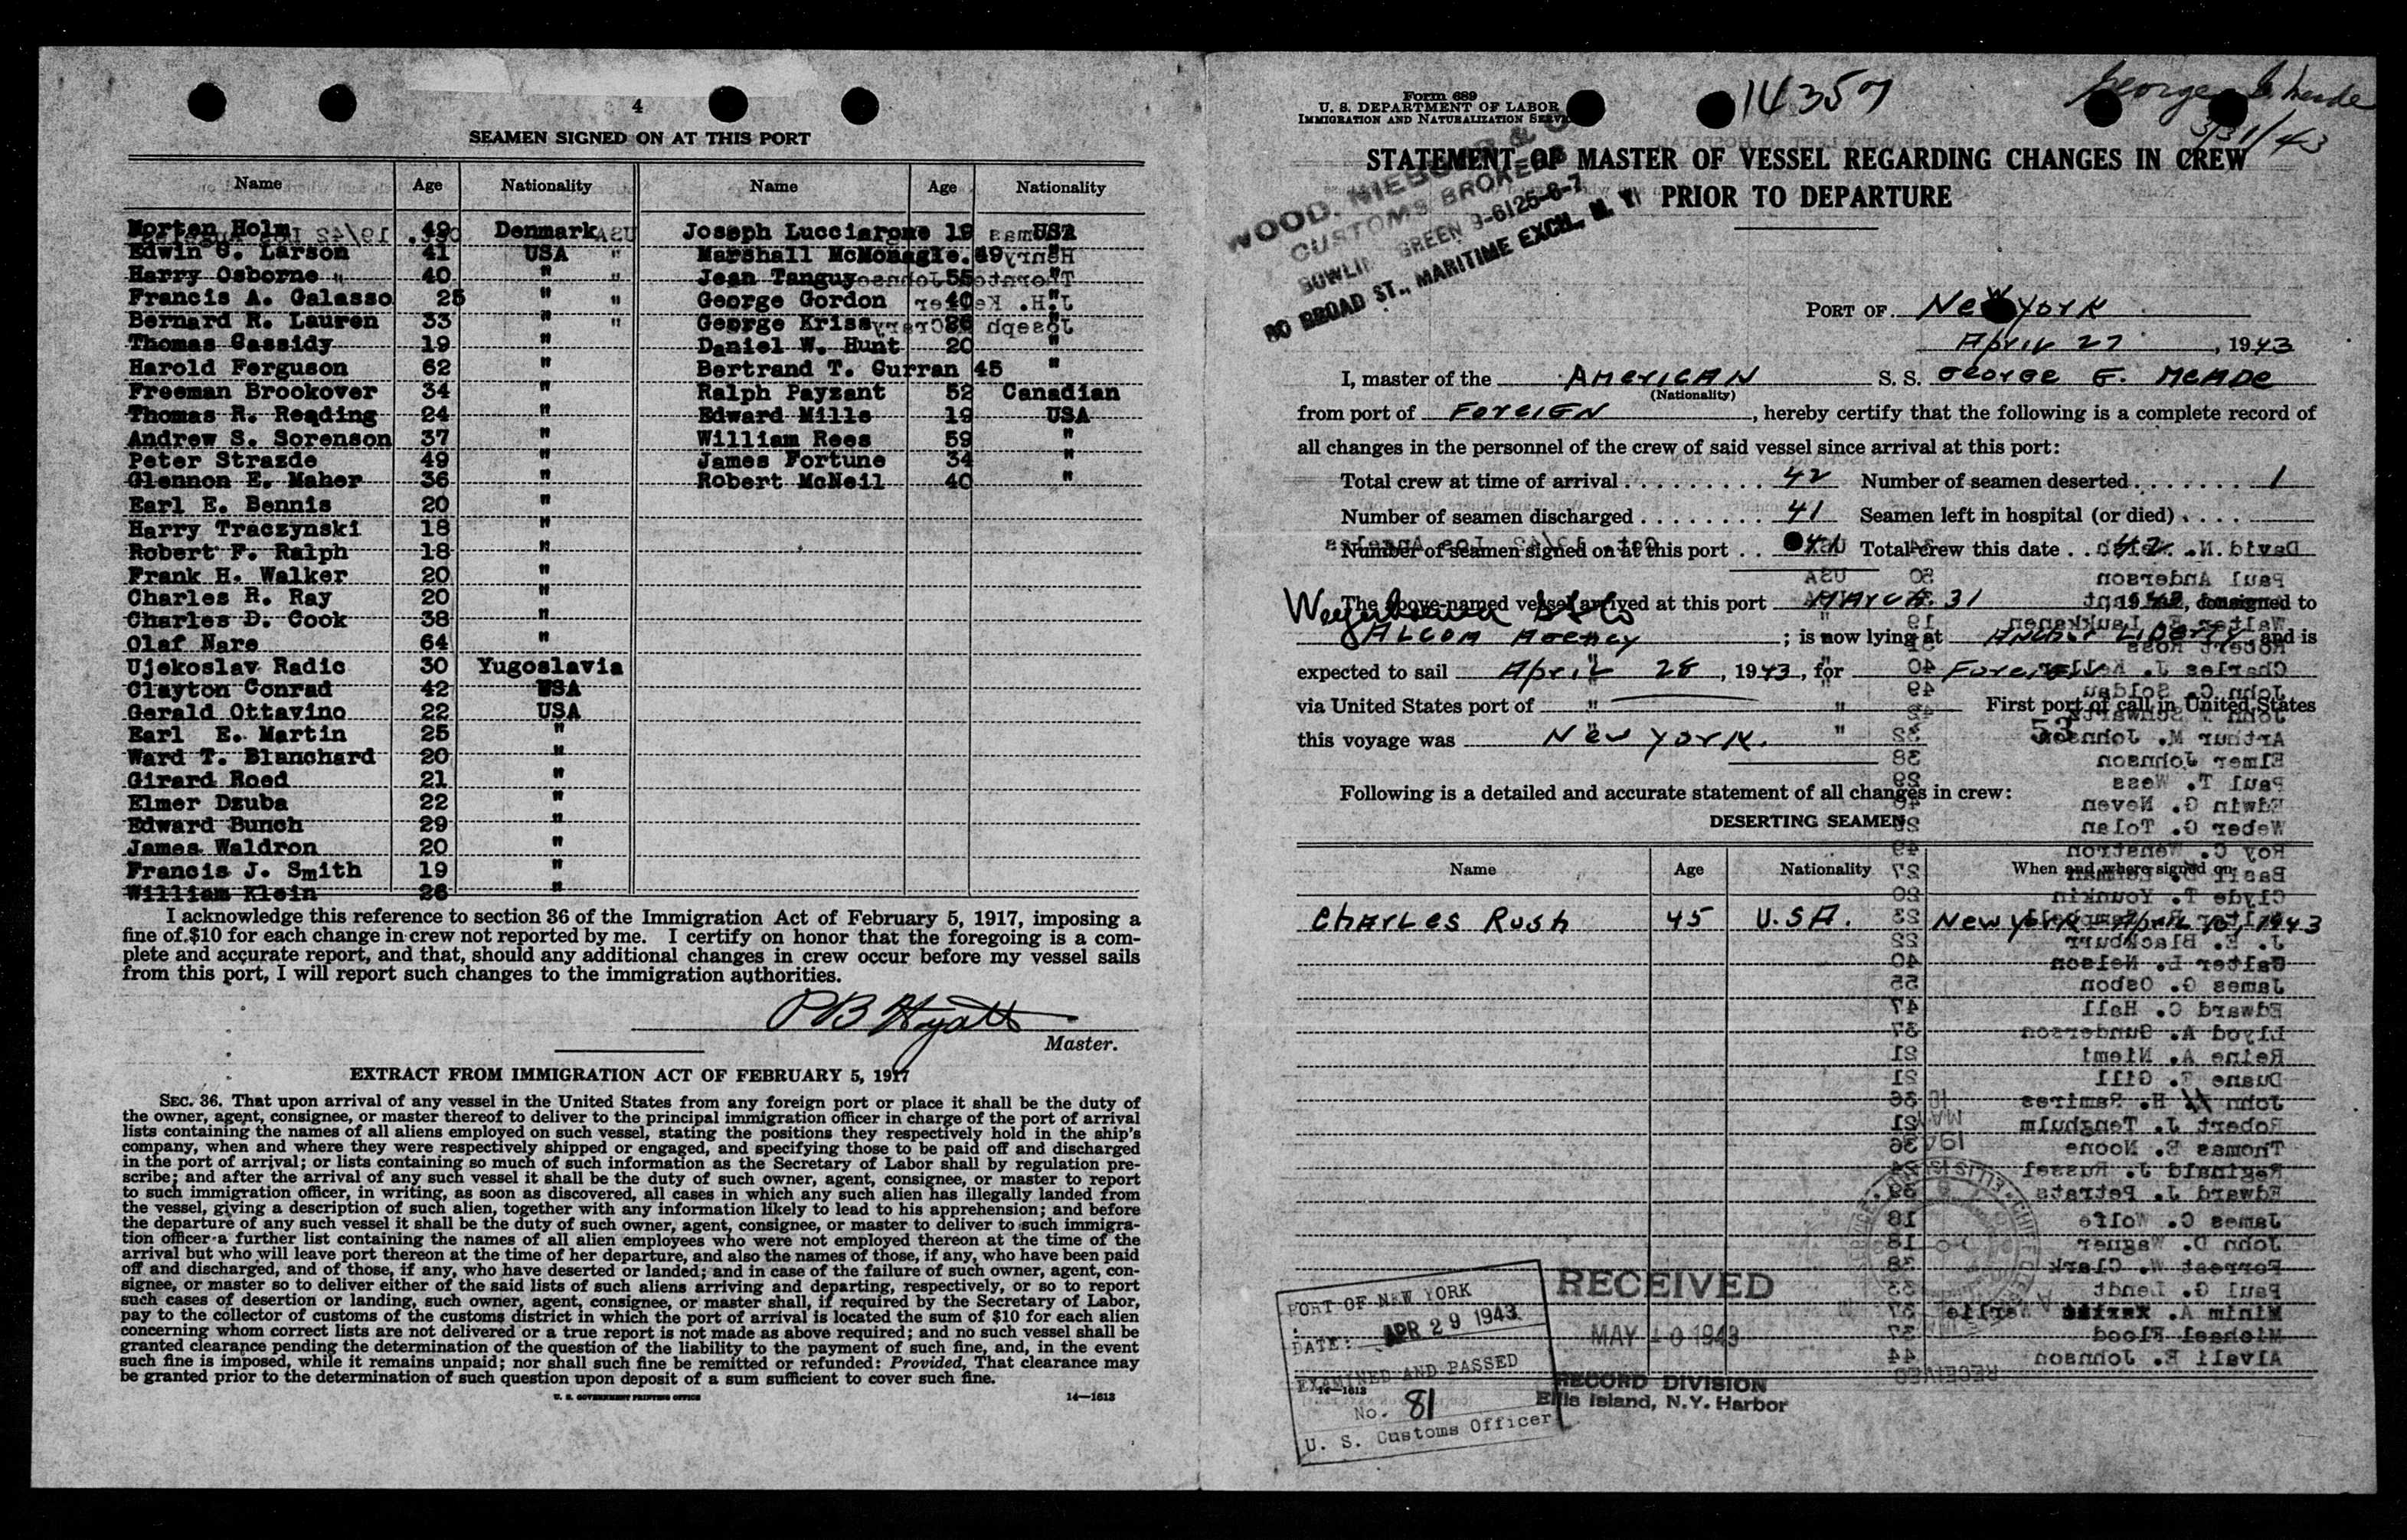 4
SEAMEN SIGNED ON AT THIS PORT
Name Age Nationality Name Age Nationality
Morten Holm 49 Denmark Joseph Lucciarone 19 USA
Edwin G. Larson 41 USA Marshall McMonagle. 49 "
Harry Osborne 40 " Jean Tanguy 55 "
Francis A. Galasso 25 " George Gordon 40 "
Bernard R. Lauren 33 " George Kriss 26 "
Thomas Cassidy 19 " Daniel W. Hunt 20 "
Harold Ferguson 62 " Bertrand T. Curran 45 "
Freeman Brookover 34 " Ralph Payzant 52 Canadian
Thomas R. Reading 24 " Edward Mills 19 USA
Andrew S. Sorenson 37 " William Rees 59 "
Peter Strazde 49 " James Fortune 34 "
Glennon E. Maher 36 " Robert McNeil 40 "
Earl E. Bennis 20 "
Harry Traczynski 18 "
Robert F. Ralph 18 "
Frank H. Walker 20 "
Charles R. Ray 20 "
Charles D. Cook 38 "
Olaf Nare 64 "
Ujekoslav Radic 30 Yugoslavia
Clayton Conrad 42 USA
Gerald Ottavino 22 USA
Earl E. Martin 25 "
Ward T. Blanchard 20 "
Girard Roed 21 "
Elmer Dzuba 22 "
Edward Bunch 29 "
James Waldron 20 "
Francis J. Smith 19 "
William Klein 26 "
I acknowledge this reference to section 36 of the Immigration Act of February 5, 1917, imposing a
fine of $10 for each change in crew not reported by me. I certify on honor that the foregoing is a com-
plete and accurate report, and that, should any additional changes in crew occur before my vessel sails
from this port, I will report such changes to the immigration authorities.
P B Hyatt
Master.
EXTRACT FROM IMMIGRATION ACT OF FEBRUARY 5, 1917
SEC. 36. That upon arrival of any vessel in the United States from any foreign port or place it shall be the duty of
the owner, agent, consignee, or master thereof to deliver to the principal immigration officer in charge of the port of arrival
lists containing the names of all aliens employed on such vessel, stating the positions they respectively hold in the ship's
company, when and where they were respectively shipped or engaged, and specifying those to be paid off and discharged
in the port of arrival; or lists containing so much of such information as the Secretary of Labor shall by regulation pre-
scribe; and after the arrival of any such vessel it shall be the duty of such owner, agent, consignee, or master to report
to such immigration officer, in writing, as soon as discovered, all cases in which any such alien has illegally landed from
the vessel, giving a description of such alien, together with any information likely to lead to his apprehension; and before
the departure of any such vessel it shall be the duty of such owner, agent, consignee, or master to deliver to such immigra-
tion officer a further list containing the names of all alien employees who were not employed thereon at the time of the
arrival but who will leave port thereon at the time of her departure, and also the names of those, if any, who have been paid
off and discharged, and of those, if any, who have deserted or landed; and in case of the failure of such owner, agent, con-
signee, or master so to deliver either of the said lists of such aliens arriving and departing, respectively, or so to report
such cases of desertion or landing, such owner, agent, consignee, or master shall, if required by the Secretary of Labor,
pay to the collector of customs of the customs district in which the port of arrival is located the sum of $10 for each alien
concerning whom correct lists are not delivered or a true report is not made as above required; and no such vessel shall be
granted clearance pending the determination of the question of the liability to the payment of such fine, and, in the event
such fine is imposed, while it remains unpaid; nor shall such fine be remitted or refunded: Provided, That clearance may
be granted prior to the determination of such question upon deposit of a sum sufficient to cover such fine.
U. S. GOVERNMENT PRINTING OFFICE 14—1613
Form 689
U. S. DEPARTMENT OF LABOR
IMMIGRATION AND NATURALIZATION SERVICE
14357
George G. Meade
3/31/43
STATEMENT OF MASTER OF VESSEL REGARDING CHANGES IN CREW
PRIOR TO DEPARTURE
WOOD, NIEBUHR & CO
CUSTOMS BROKERS
BOWLING GREEN 9-6125-6-7
80 BROAD ST., MARITIME EXCH., N. Y.
PORT OF New York
April 27, 1943
I, master of the American S. S. George G. Meade
(Nationality)
from port of Foreign, hereby certify that the following is a complete record of
all changes in the personnel of the crew of said vessel since arrival at this port:
Total crew at time of arrival 42 Number of seamen deserted 1
Number of seamen discharged 41 Seamen left in hospital (or died)
Number of seamen signed on at this port 41 Total crew this date 42
The above-named vessel arrived at this port March 31, 1943, consigned to
Weyerhaeuser SS Co
Alcoa Agency; is now lying at Anchor Liberty and is
expected to sail April 28, 1943, for Foreign
via United States port of First port of call in United States
this voyage was New York.
53
Following is a detailed and accurate statement of all changes in crew:
DESERTING SEAMEN
Name Age Nationality When and where signed on
Charles Rush 45 U.S.A. New York April 10, 1943
PORT OF NEW YORK
DATE: APR 29 1943
EXAMINED AND PASSED
No. 81
U. S. Customs Officer
14—1613
RECEIVED
MAY 10 1943
RECORD DIVISION
Ellis Island, N.Y. Harbor